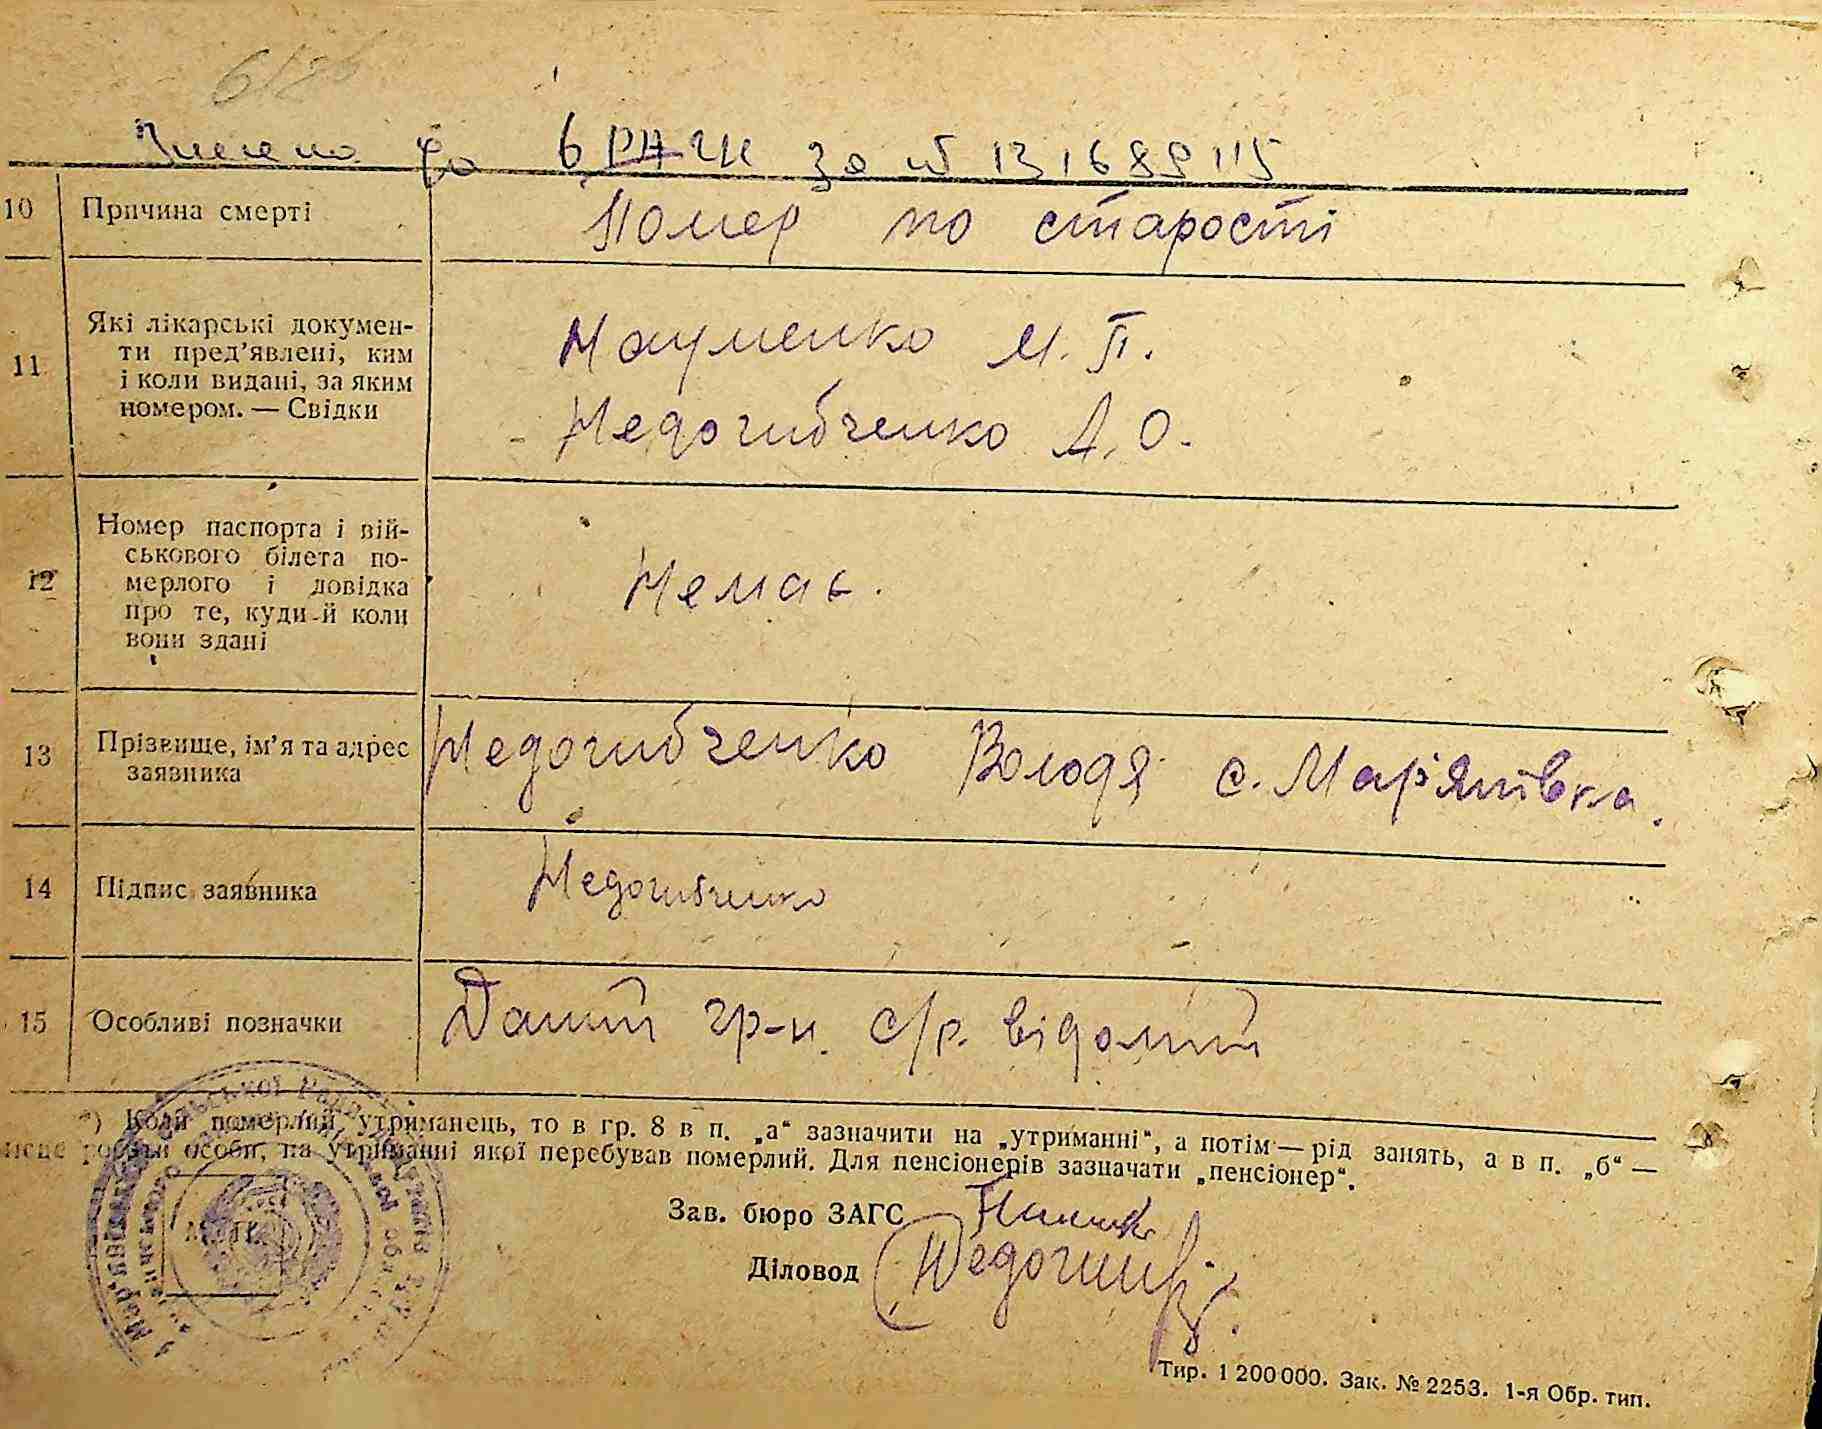 Внесено до ДРАЦС за № 13168915
10 Причина смерті Помер по старості
11 Які лікарські докумен-
ти пред'явлені, ким
і коли видані, за яким
номером. — Свідки
Науменко М. П.
Недогибченко А. О.
12 Номер паспорта і вій-
ськового білета по-
мерлого і довідка
про те, куди й коли
вони здані
Немає.
13 Прізвище, ім'я та адрес
заявника
Недогибченко Володя с. Мар'янівка.
14 Підпис заявника Недогибченко
15 Особливі позначки Даний гр-н. с/р. відомий
*) Коли померлий утриманець, то в гр. 8 в п. „а“ зазначити на „утриманні“, а потім — рід занять, а в п. „б“ —
місце роботи особи, на утриманні якої перебував померлий. Для пенсіонерів зазначати „пенсіонер“.
Зав. бюро ЗАГС
Діловод
Тир. 1 200 000. Зак. № 2253. 1-я Обр. тип.